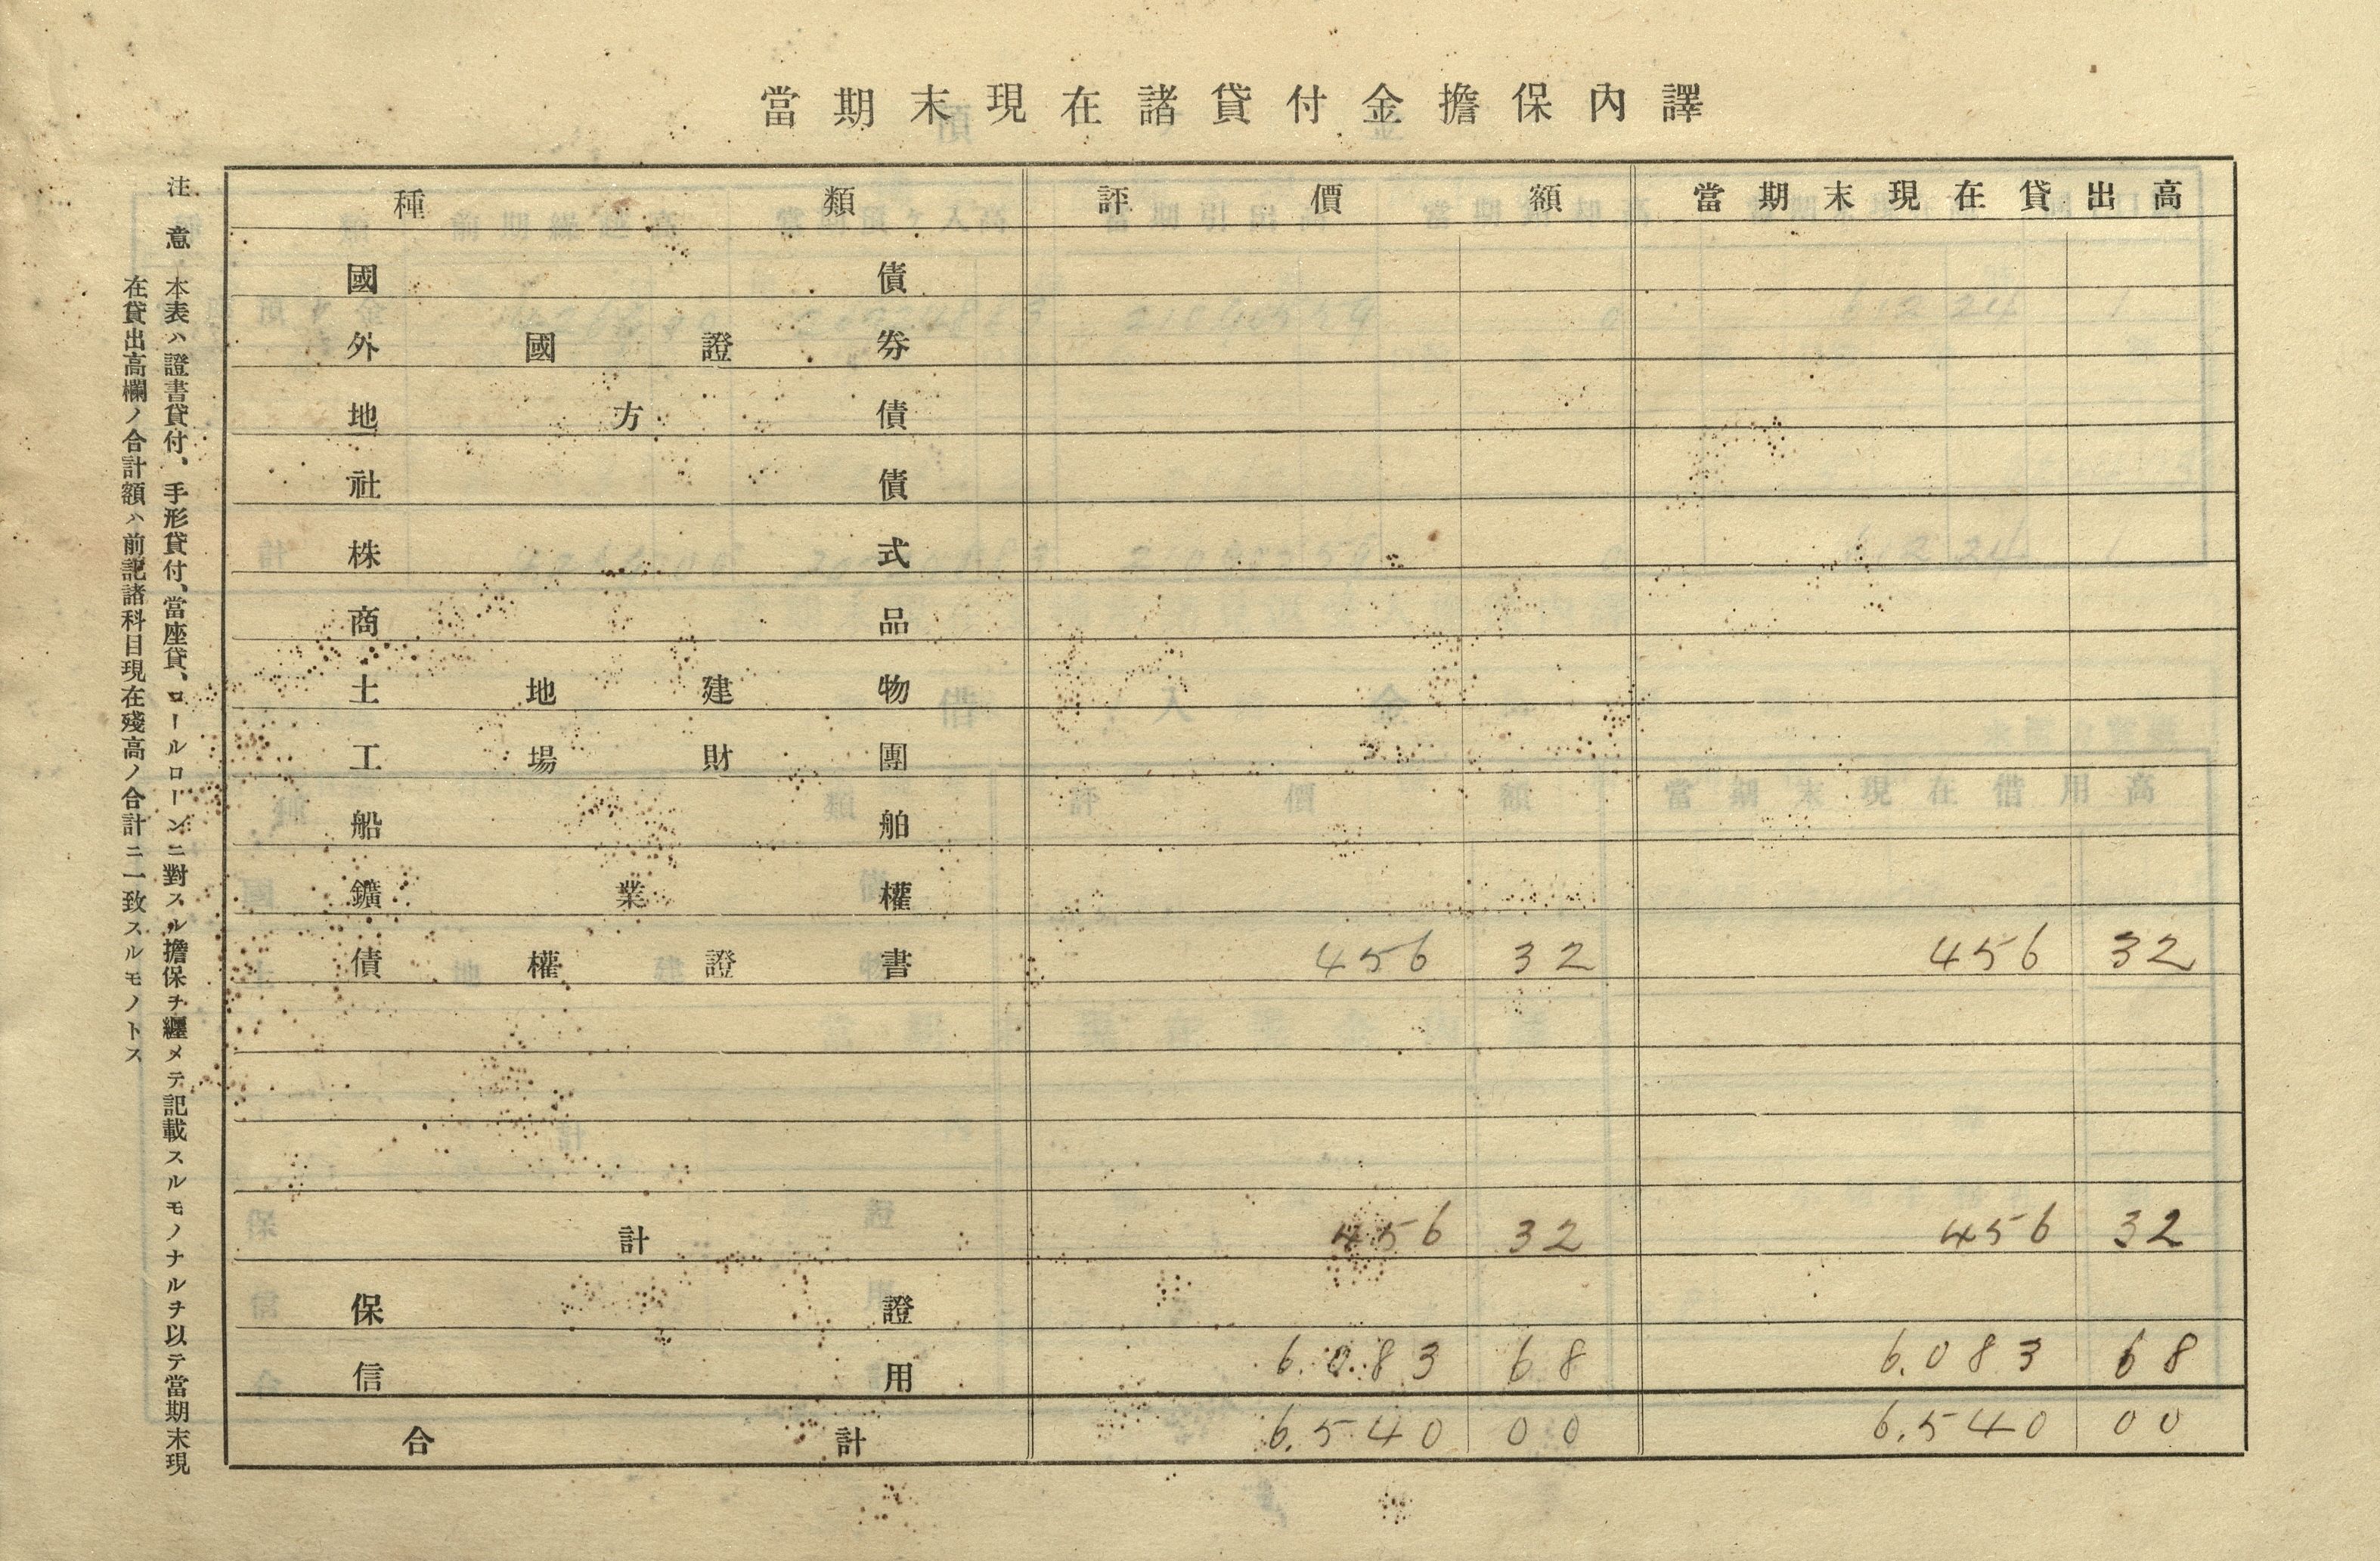 當期末現在諸貸付金擔保內譯
種類 評價額 當期末現在貸出高
國債
外國證券
地方債
社債
株式
商品
土地建物
工場財團
船舶
鑛業權
債權證書 456 32 456 32
計 456 32 456 32
保證
信用 6.083 68 6.083 68
合計 6.540 00 6.540 00
注意 本表ハ證書貸付、手形貸付、當座貸、ロールローンニ對スル擔保ヲ纒メテ記載スルモノナルヲ以テ當期末現
在貸出高欄ノ合計額ハ前記諸科目現在殘高ノ合計ニ一致スルモノトス